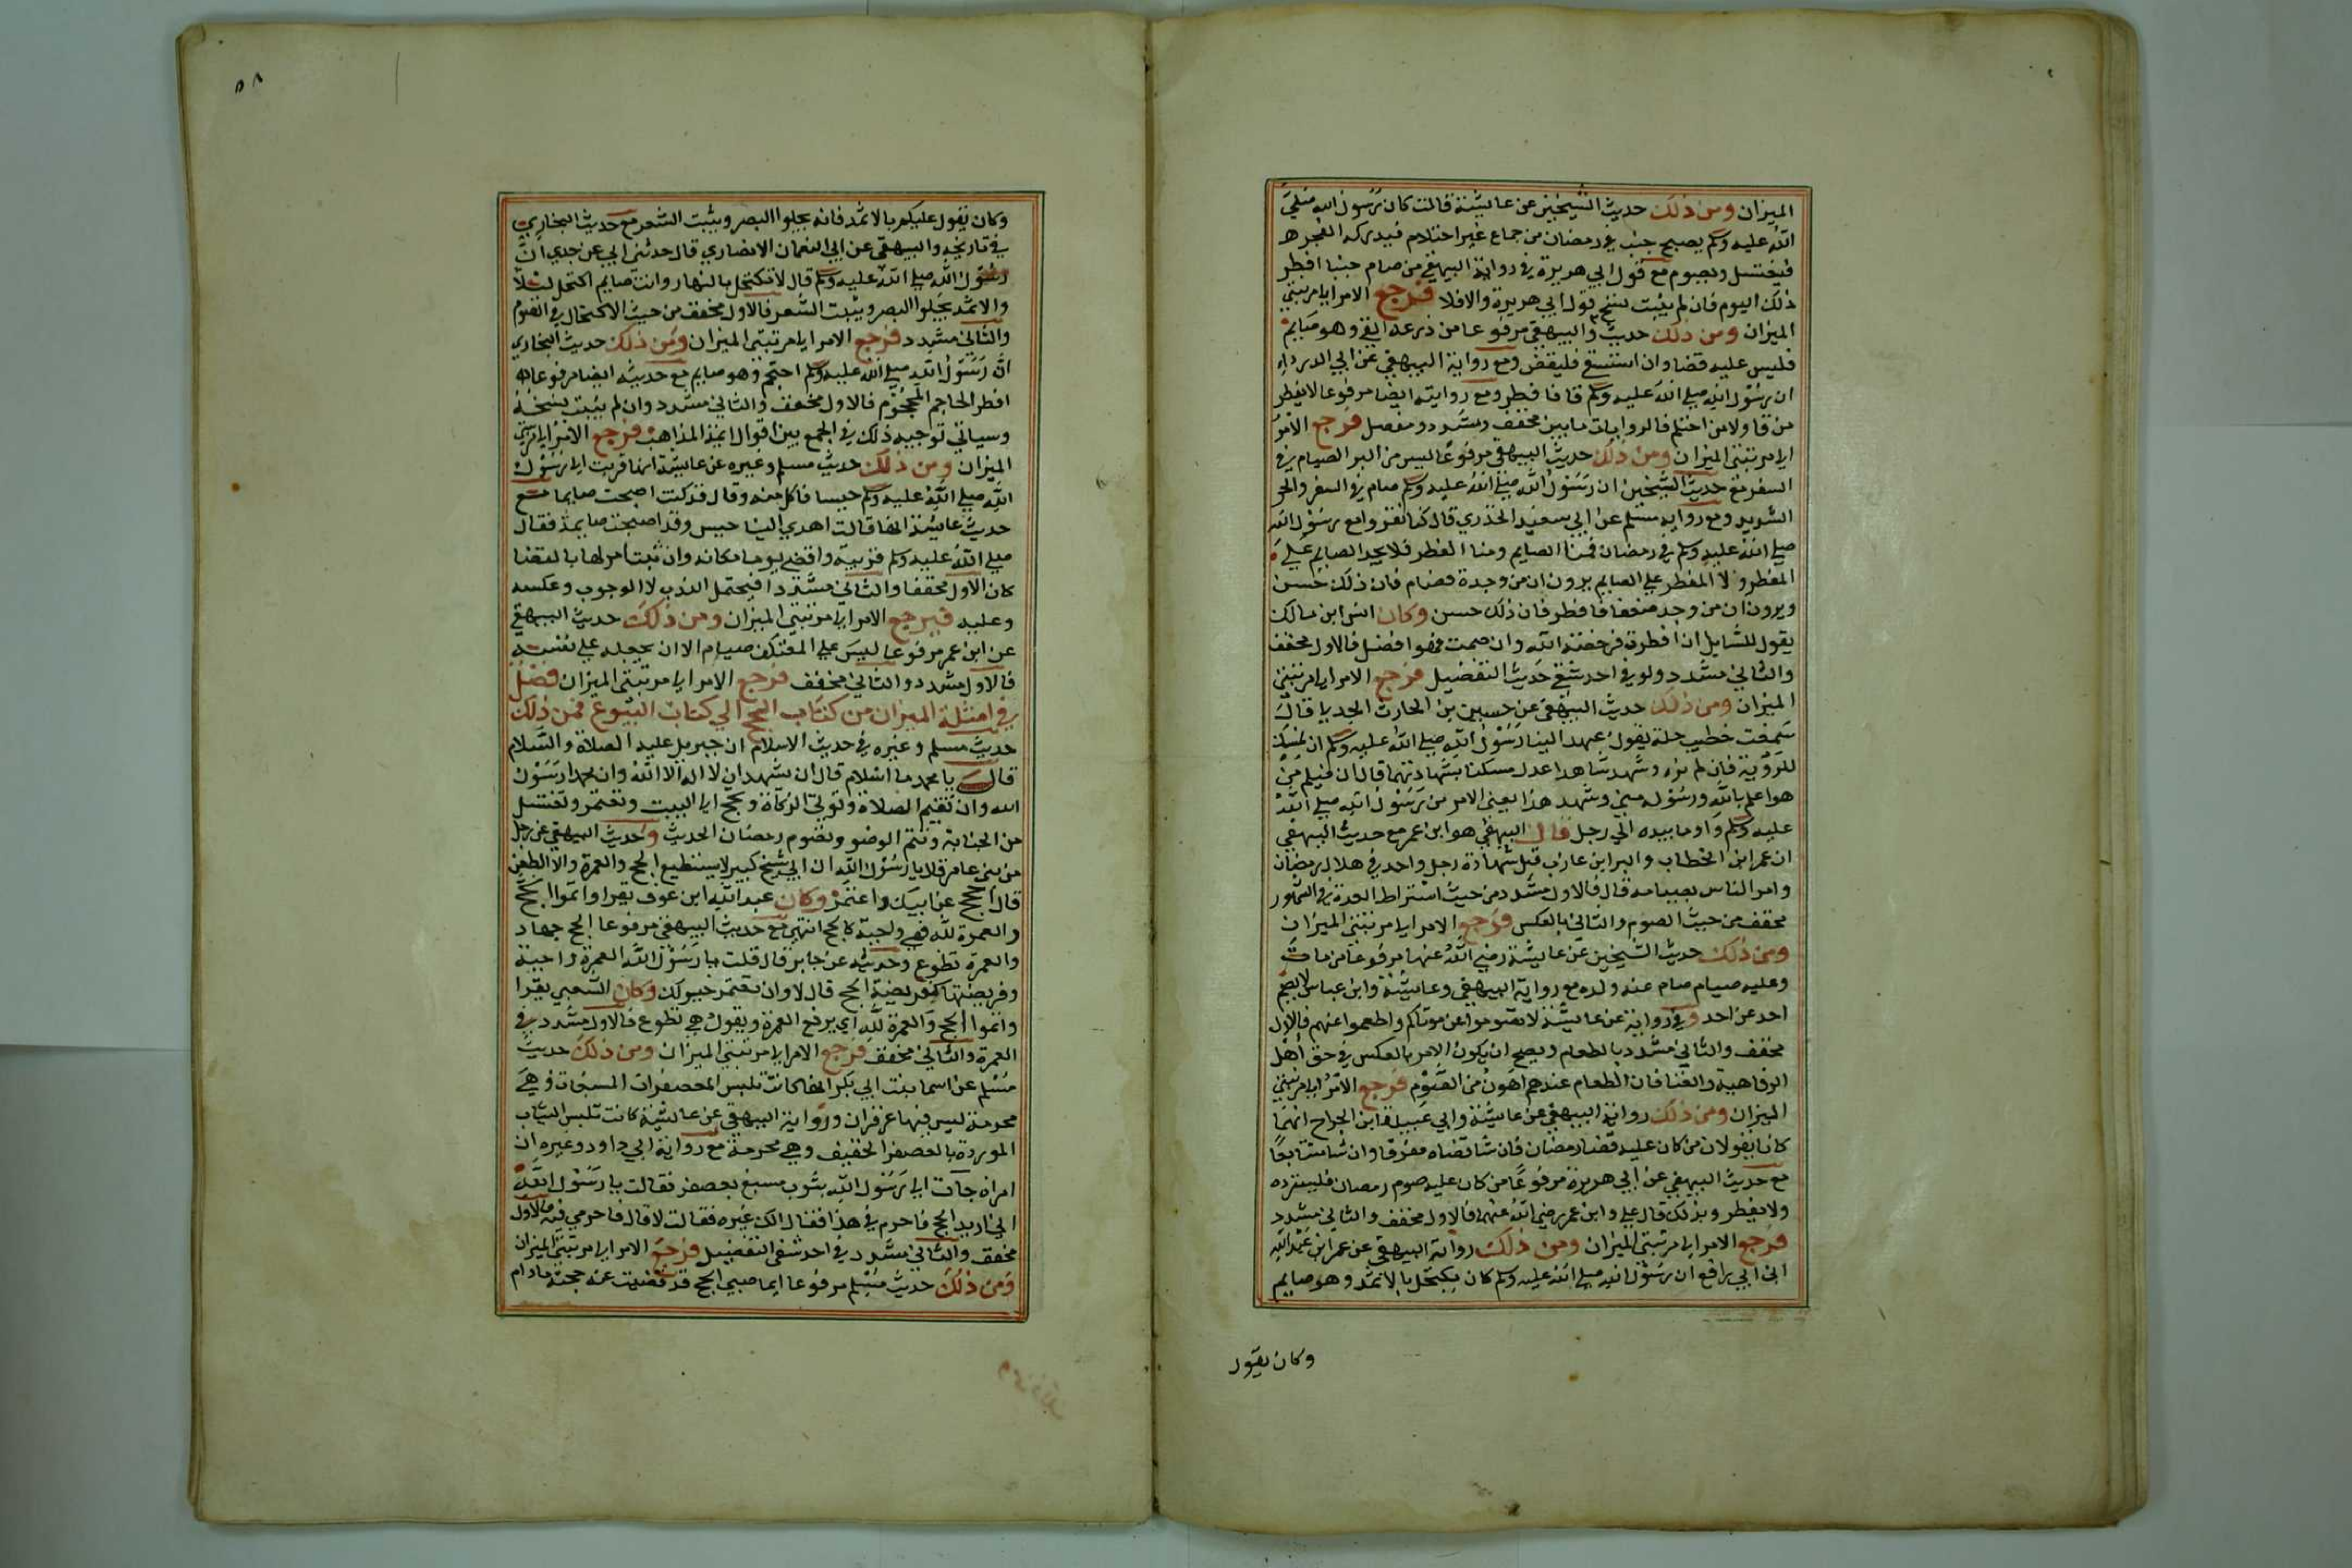 الميزان ومن ذلك حديث الشيخين عن عايشة قالت كان رسول الله صلي
الله عليه وسلم يصبح جنب في رمضان من جماع غير احتلام فيدركه الفجر
فيغتسل ويصوم مع قول ابي هريرة في رواية البيهقي من صام جنبا افطر
ذلك اليوم فان لم يثبت نسخ قول ابي هريرة والافلا فرجع الامر الي مرتبتي
الميزان ومن ذلك حديث والبيهقي مرفوعا من ذرعه القي وهو صايم
فليس عليه قضا وان استسقي فليقض ومع رواية البيهقي عن ابي الدرداء
ان رسول الله صلي الله عليه وسلم قا فافطر ومع روايته ايضا مرفوعا لا يفطر
من قا ولا من احتلم فالروايات مابين مخفف ومشدد ومفصل فرجع الامر
الي مرتبتي الميزان ومن ذلك حديث البيهقي مرفوعا ليس من البر الصيام في
السفر مع حديث الشيخين ان رسول الله صلي الله عليه وسلم صام في السفر والحر
الشديد ومع رواية مسلم عن ابي سعيد الخدري قال كنا نغزوا مع رسول الله
صلي الله عليه وسلم في رمضان فمنا الصايم ومنا المفطر فلا يجد الصايم علي
المفطر ولا المفطر علي الصايم يرون ان من وجد قوة فصام فان ذلك حسن
ويرون ان من وجد ضعفا فافطر فان ذلك حسن وكان انس ابن مالك
يقول للسايل ان افطرت فرخصة الله وان صمت فهو افضل فالاول مخفف
والثاني مشدد ولو في احد شقي حديث التفضيل فرجع الامر الي مرتبتي
الميزان ومن ذلك حديث البيهقي عن حسين بن الحارث الجدلي قال
سمعت خطيب مكة يقول عهد الينا رسول الله صلي الله عليه وسلم ان ننسك
للروية فان لم نره وشهد شاهدا عدل نسكنا بشهادتهما قال ان فيكم من
هو اعلم بالله ورسوله مني وشهد هذا يعني الامر من رسول الله صلي الله
عليه وسلم واوما بيده الي رجل قال البيهقي هو ابن عمر مع حديث البيهقي
ان عمر ابن الخطاب والبرا ابن عازب قبل شهادة رجل واحد في هلال رمضان
وامر الناس بصيامه قال فالاول مشدد من حيث اشتراط العدة في الشهود
مخفف من حيث الصوم والثاني بالعكس فرجع الامر الي مرتبتي الميزان
ومن ذلك حديث الشيخين عن عايشة رضي الله عنها مرفوعا من مات
وعليه صيام صام عنه ولده مع رواية البيهقي وعايشة وابن عباس لا يصم
احد عن احد وفي رواية عن عايشة لا تصوموا عن موتاكم واطعموا عنهم فالاول
مخفف والثاني مشدد بالطعام ويصح ان يكون الامر بالعكس في حق اهل
الرفاهية والغنا فان الطعام عندهم اهون من الصوم فرجع الامر الي مرتبتي
الميزان ومن ذلك رواية البيهقي عن عايشة وابي عبيدة ابن الجراح انهما
كانا يقولان من كان عليه قضا رمضان فان شا قضاه مفرقا وان شا متتابعا
مع حديث البيهقي عن ابي هريرة مرفوعا من كان عليه صوم رمضان فليسرده
ولا يفطر وبذلك قال علي وابن عمر رضي الله عنهم فالاول مخفف والثاني مشدد
فرجع الامر الي مرتبتي الميزان ومن ذلك رواية البيهقي عن عمر ابن عبد الله
ابن ابي رافع ان رسول الله صلي الله عليه وسلم كان يكتحل بالاثمد وهو صايم
وكان يقول
٥٨
وكان يقول عليكم بالاثمد فانه يجلوا البصر وينبت الشعر مع حديث البخاري
في تاريخه والبيهقي عن ابي النعمان الانصاري قال حدثني ابي عن جدي ان
رسول الله صلي الله عليه وسلم قال لا تكتحل بالنهار وانت صايم اكتحل ليلا
والاثمد يجلوا البصر وينبت الشعر فالاول مخفف من حيث الاكتحال في الصوم
والثاني مشدد فرجع الامر الي مرتبتي الميزان ومن ذلك حديث البخاري
ان رسول الله صلي الله عليه وسلم احتجم وهو صايم مع حديثه ايضا مرفوعا
افطر الحاجم والمحجوم فالاول مخفف والثاني مشدد وان لم يثبت نسخه
وسياتي توجيه ذلك في الجمع بين اقوال ايمة المذاهب فرجع الامر الي مرتبتي
الميزان ومن ذلك حديث مسلم وغيره عن عايشة انها قربت الي رسول
الله صلي الله عليه وسلم حيسا فاكل منه وقال قد كنت اصبحت صايما مع
حديث عايشة انها قالت اهدي الينا حيس وقد اصبحت صايمة فقال
صلي الله عليه وسلم قربيه واقضي يوما مكانه وان ثبت امرلها بالقضا
كان الاول مخففا والثاني مشددا فيحتمل الندب لا الوجوب وعكسه
وعليه فيرجع الامر الي مرتبتي الميزان ومن ذلك حديث البيهقي
عن ابن عمر مرفوعا ليس علي المعتكف صيام الا ان يجعله علي نفسه
فالاول مشدد والثاني مخفف فرجع الامر الي مرتبتي الميزان فصل
في امثلة الميزان من كتاب الحج الي كتاب البيوع فمن ذلك
حديث مسلم وغيره في حديث الاسلام ان جبريل عليه الصلاة والسلام
قال يا محمد ما اسلام قال ان تشهد ان لا اله الا الله وان محمدا رسول
الله وان تقيم الصلاة وتوتي الزكاة وتحج الي البيت وتعتمر وتغتسل
من الجنابة وتتم الوضو وتصوم رمضان الحديث وحديث البيهقي عن رجل
من بني عامر قال يا رسول الله ان ابي شيخ كبير لا يستطيع الحج والعمرة ولا الظعن
قال احجج عن ابيك واعتمر وكان عبد الله ابن عوف يقرا واتموا الحج
والعمرة لله فهي واجبة كالحج انتهي مع حديث البيهقي مرفوعا الحج جهاد
والعمرة تطوع وحديثه عن جابر قال قلت يا رسول الله العمرة واجبة
وفريضتها كفريضة الحج قال لا وان تعتمر خير لك وكان الشعبي يقرا
واتموا الحج والعمرة لله اي يرفع العمرة ويقول هي تطوع فالاول مشدد في
العمرة والثاني مخفف فرجع الامر الي مرتبتي الميزان ومن ذلك حديث
مسلم عن اسما بنت ابي بكر انها كانت تلبس المعصفرات المسبغات وهي
محرمة ليس فيها زعفران ورواية البيهقي عن عايشة كانت تلبس الثياب
الموردة بالعصفر الخفيف وهي محرمة مع رواية ابي داود وغيره ان
امراة جات الي رسول الله بثوب مسبغ بعصفر فقالت يا رسول الله
اني اريد الحج فاحرم في هذا فقال الك غيره فقالت لا قال فاحرمي فيه فالاول
مخفف والثاني مشدد في احد شقي التفضيل فرجع الامر الي مرتبتي الميزان
ومن ذلك حديث مسلم مرفوعا ايما صبي الحج قد قضيت عنه حجته مادام